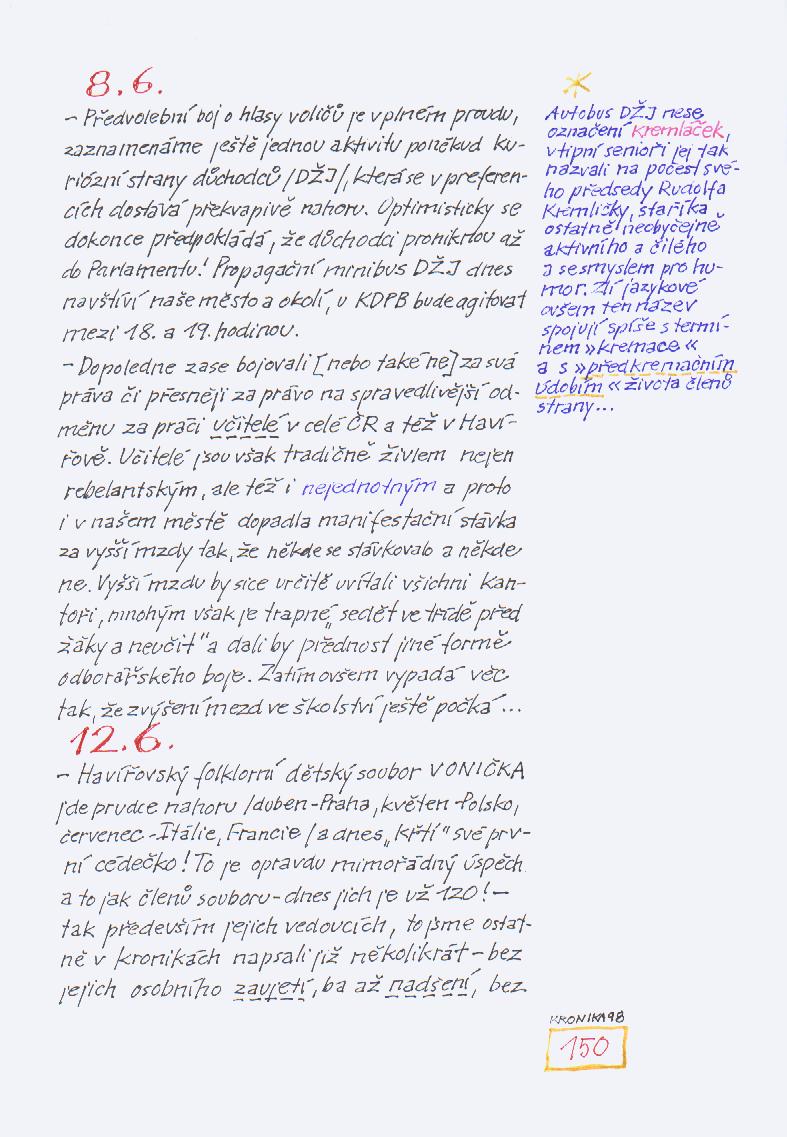 8.6.
– Předvolební boj o hlasy voličů je v plném proudu,
zaznamenáme ještě jednou aktivitu poněkud ku-
riózní strany důchodců /DŽJ/, která se v preferen-
cích dostává překvapivě nahoru. Optimisticky se
dokonce předpokládá, že důchodci proniknou až
do Parlamentu! Propagační minibus DŽJ dnes
navštíví naše město a okolí, u KDPB bude agitovat
mezi 18. a 19. hodinou.
– Dopoledne zase bojovali [nebo také ne] za svá
práva či přesněji za právo na spravedlivější od-
měnu za práci učitelé v celé ČR a též v Haví-
řově. Učitelé jsou však tradičně živlem nejen
rebelantským, ale též i nejednotným a proto
i v našem městě dopadla manifestační stávka
za vyšší mzdy tak, že někde se stávkovalo a někde
ne. Vyšší mzdu by sice určitě uvítali všichni kan-
toři, mnohým však je trapné „sedět ve třídě před
žáky a neučit“ a dali by přednost jiné formě
odborářského boje. Zatím ovšem vypadá věc
tak, že zvýšení mezd ve školství ještě počká...
12.6.
– Havířovský folklorní dětský soubor VONIČKA
jde prudce nahoru /duben-Praha, květen-Polsko,
červenec-Itálie, Francie/ a dnes „křtí“ své prv-
ní cédéčko! To je opravdu mimořádný úspěch
a to jak členů souboru – dnes jich je už 120! –
tak především jejich vedoucích, to jsme ostat-
ně v kronikách napsali již několikrát – bez
jejich osobního zaujetí, ba až nadšení, bez
Autobus DŽJ nese
označení Kremláček,
vtipní senioři jej tak
nazvali na počest své-
ho předsedy Rudolfa
Kremličky, staříka
ostatně neobyčejně
aktivního a čilého
a se smyslem pro hu-
mor. Zlí jazykové
ovšem ten název
spojují spíše s termí-
nem »kremace«
a s »předkremačním
údobím« života členů
strany...
KRONIKA 98
150